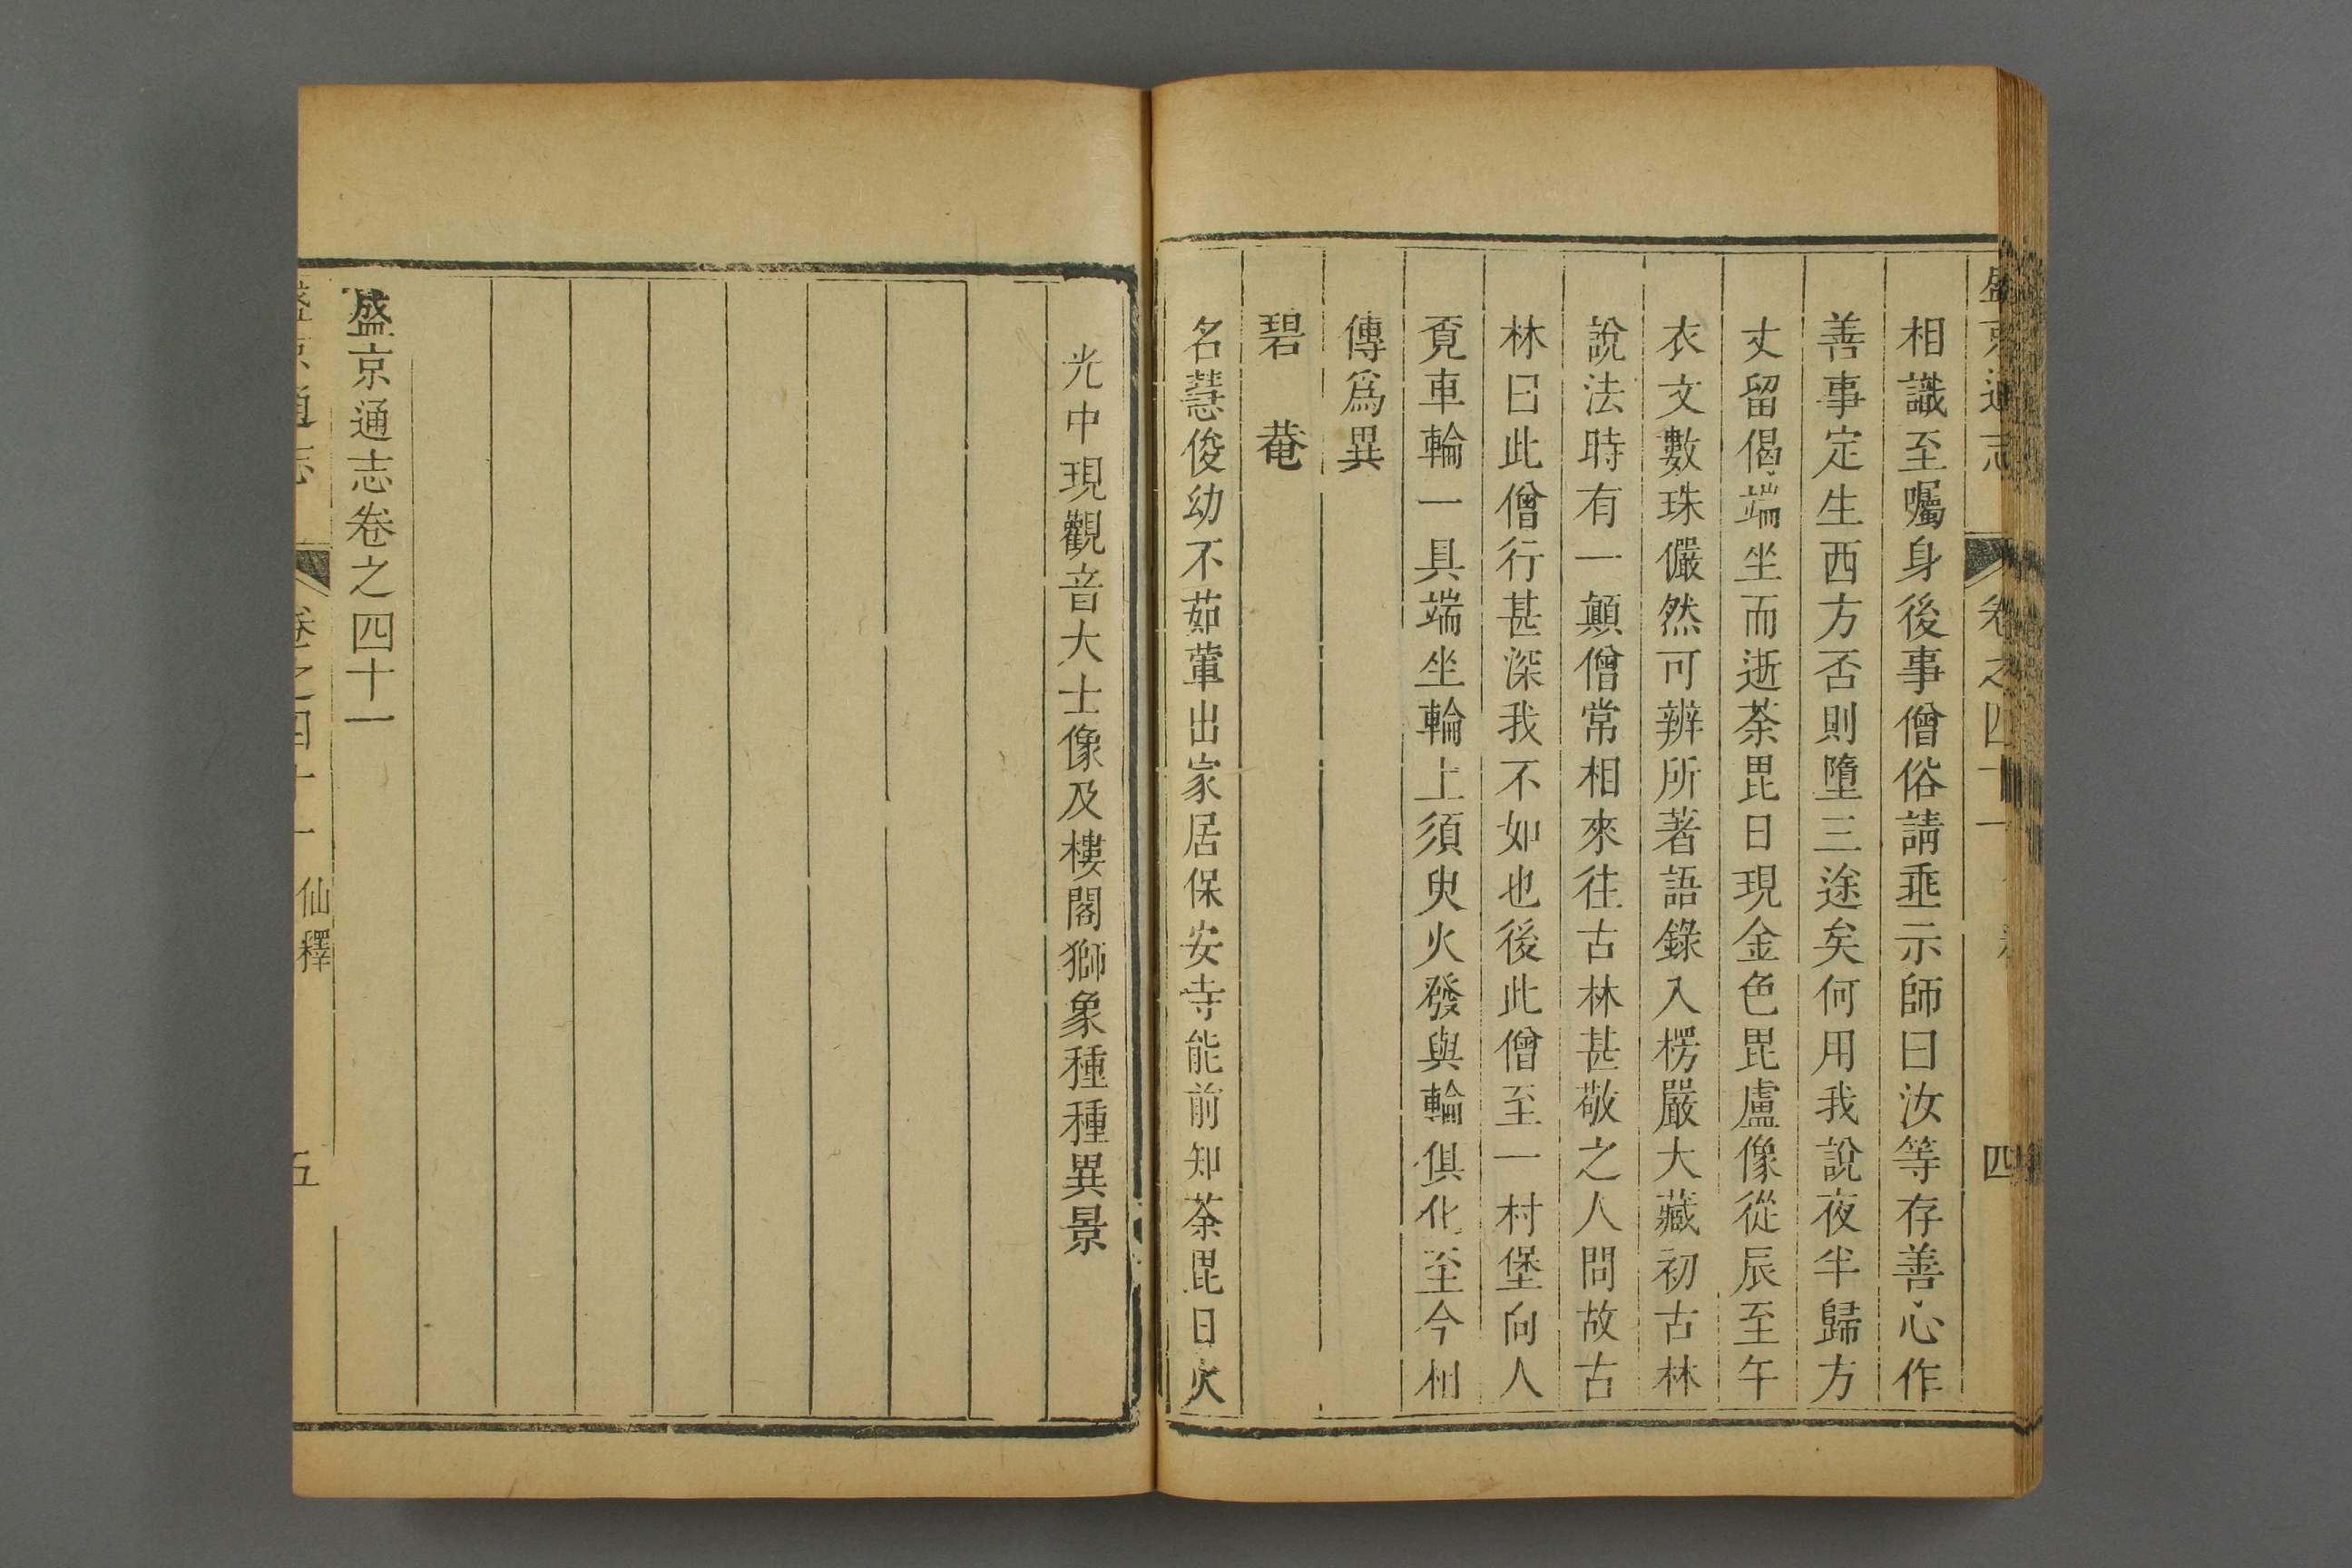 盛京通志 卷之四十一 四
相識至囑身後事僧俗請乖示師曰汝等存善心作
善事定生西方否則墮三途矣何用我說夜半歸方
丈留偈端坐而逝荼毘日現金色毘盧像從辰至午
衣文數珠儼然可辨所著語錄入楞嚴大藏初古林
說法時有一顛僧常相來往古林甚敬之人問故古
林曰此僧行甚深我不如也後此僧至一村堡向人
覓車輪一具端坐輪上須臾火發與輪俱化至今相
傳爲異
碧菴
名慧俊幼不茹葷出家居保安寺能前知荼毘日火
光中現觀音大士像及樓閣獅象種種異景
盛京通志卷之四十一
盛京通志 卷之四十一 仙釋 五